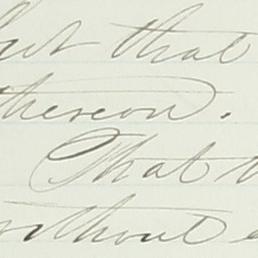 but that
thereon.
That
without